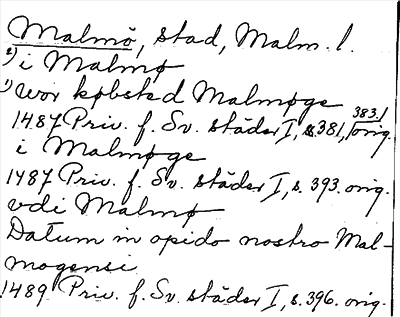 Malmö, stad, Malm. l.
2) i Malmø
1) vor købsted Malmøge
1487 Priv. f. Sv. städer I, s. 381, 383.1 orig.
i Malmøge
1487 Priv. f. Sv. städer I, s. 393. orig.
vdi Malmø
Datum in opido nostro Mal-
mogensi
1489 Priv. f. Sv. städer I, s. 396. orig.